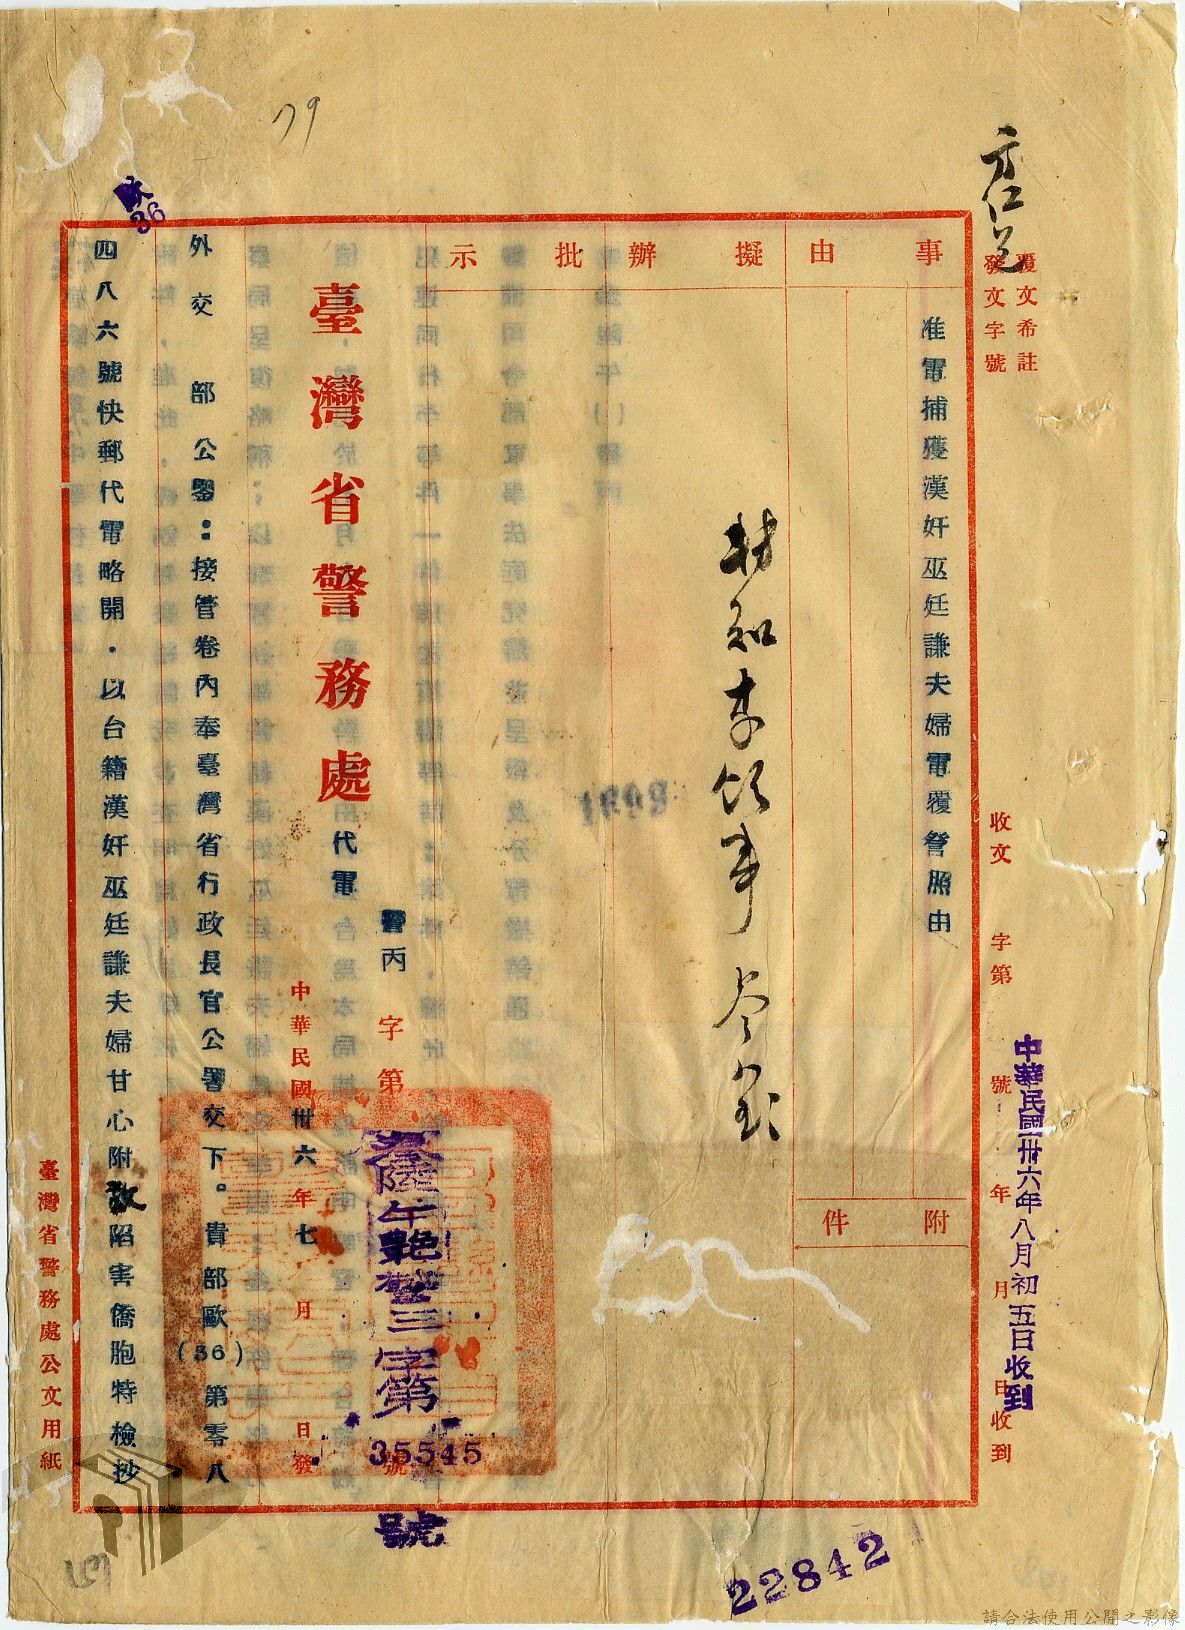 79
歐36
覆文希註
發文字號
收文 字第 號 年 月 日收到
中華民國卅六年八月初五日收到
事由
擬辦
批示
准電捕獲漢奸巫廷謙夫婦電覆詧照由
附件
抄知李領事
臺灣省警務處代電
警丙 字第 號
叁陸午艷警三字第
35545
號
中華民國卅六年七月 日發
外交部公鑒：接管卷內奉臺灣省行政長官公署交下。貴部歐(36)第零八
四八六號快郵代電略開．以台籍漢奸巫廷謙夫婦甘心附敵陷害僑胞特檢抄
臺灣省警務處公文用紙
22842
請合法使用公開之影像